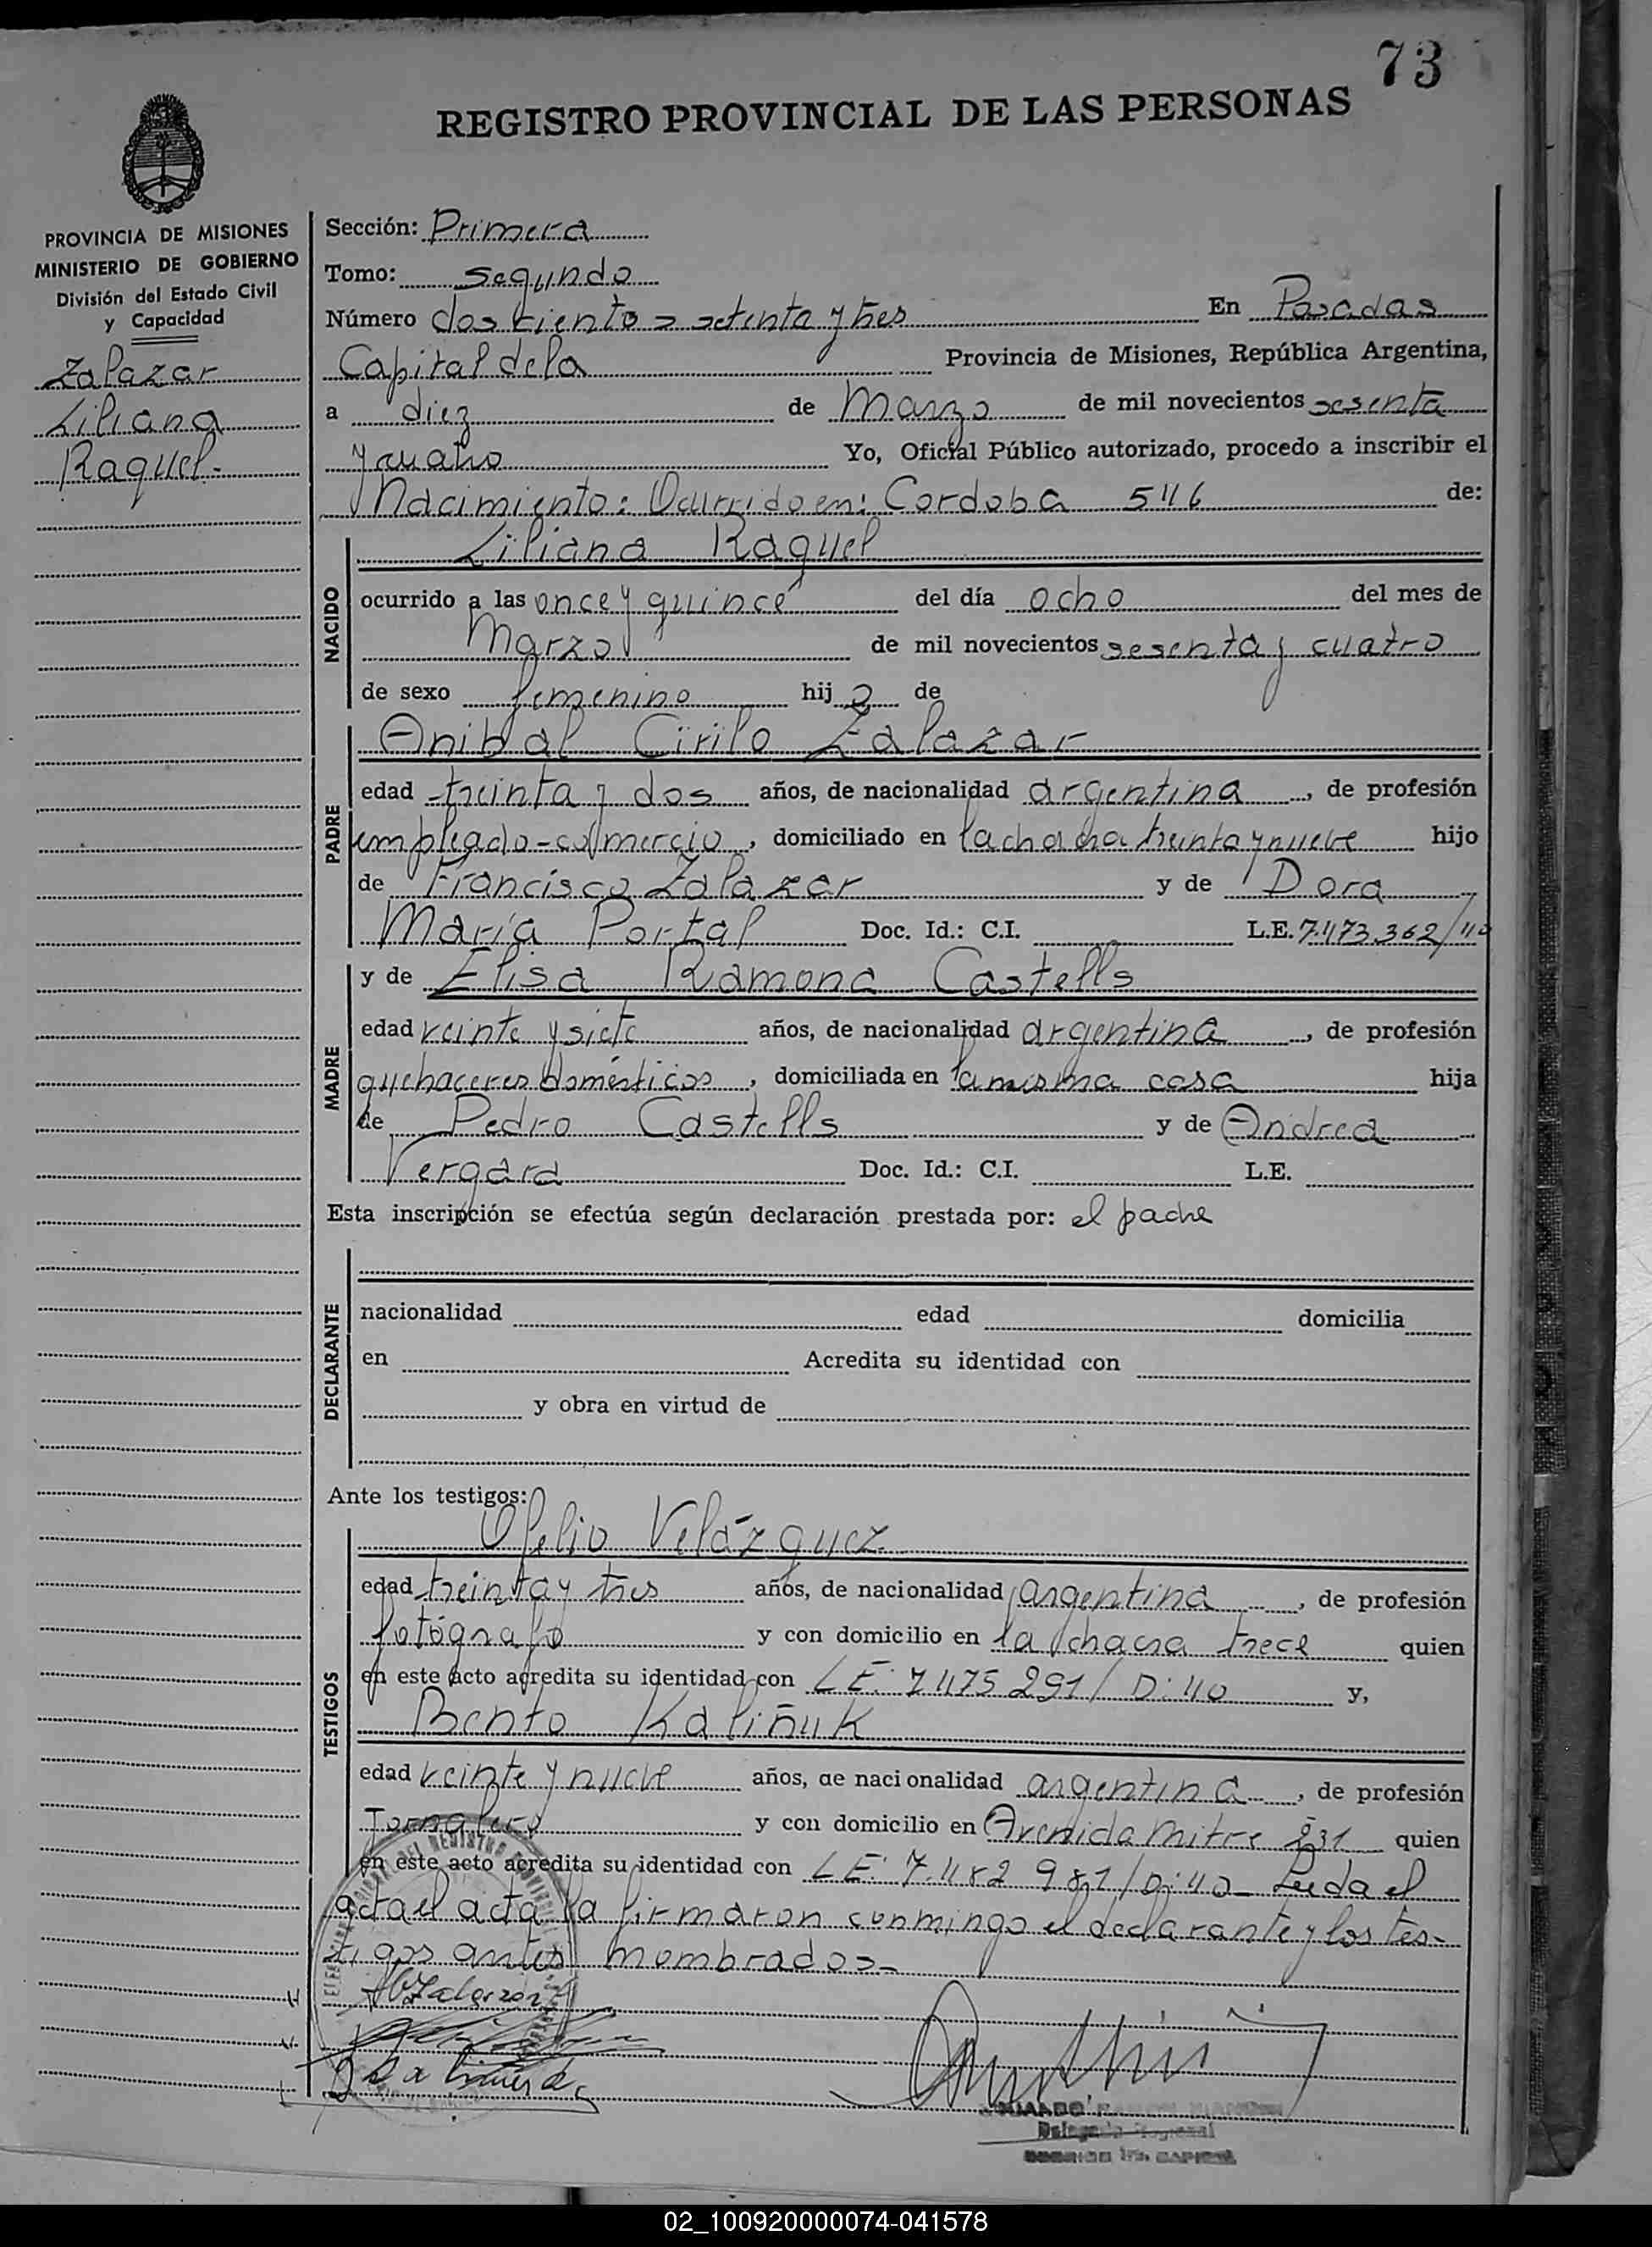 73
REGISTRO PROVINCIAL DE LAS PERSONAS
PROVINCIA DE MISIONES
MINISTERIO DE GOBIERNO
División del Estado Civil
y Capacidad
Zalazar
Liliana
Raquel.-
Sección: Primera
Tomo: segundo
Número doscientos setenta y tres En Posadas
Capital de la Provincia de Misiones, República Argentina,
a diez de Marzo de mil novecientos sesenta
y cuatro Yo, Oficial Público autorizado, procedo a inscribir el
Nacimiento: Ocurrido en: Cordoba 546 de:
NACIDO
Liliana Raquel
ocurrido a las once y quince del día ocho del mes de
Marzo de mil novecientos sesenta y cuatro
de sexo femenino hija de
PADRE
Anibal Cirilo Zalazar
edad treinta y dos años, de nacionalidad argentina, de profesión
empleado-comercio, domiciliado en la chacra treinta y nueve hijo
de Francisco Zalazar y de Dora
María Portal Doc. Id.: C.I. L.E. 7.473.362/40
MADRE
y de Elisa Ramona Castells
edad veinte y siete años, de nacionalidad argentina, de profesión
quehaceres domésticos, domiciliada en la misma casa hija
de Pedro Castells y de Andrea
Vergara Doc. Id.: C.I. L.E.
Esta inscripción se efectúa según declaración prestada por: el padre
DECLARANTE
nacionalidad edad domicilia
en Acredita su identidad con
y obra en virtud de
Ante los testigos:
TESTIGOS
Ofelio Velázquez
edad treinta y tres años, de nacionalidad argentina, de profesión
fotógrafo y con domicilio en la chacra trece quien
en este acto acredita su identidad con LE: 7475291/D:40 y,
Bento Kaliñuk
edad veinte y nueve años, de nacionalidad argentina, de profesión
Jornalero y con domicilio en Avenida Mitre 231 quien
en este acto acredita su identidad con LE: 7.482981/D:40- Leida el
acta el acta la firmaron conmingo el declarante y los tes-
tigos antes nombrados-
AC Zalazar
02_100920000074-041578